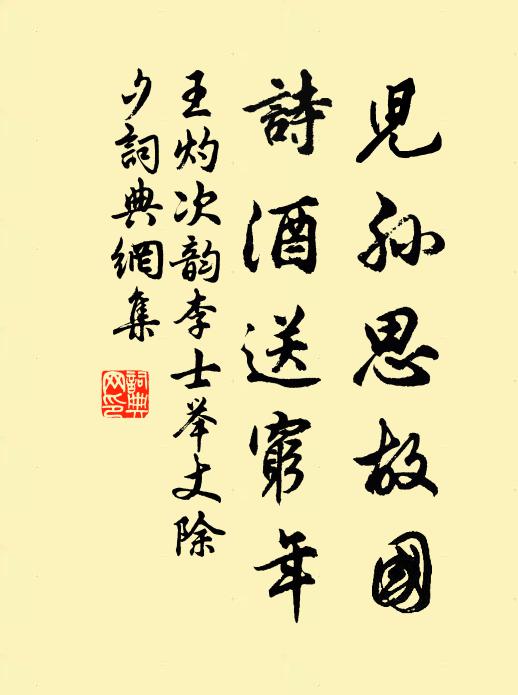 兒孫思故國
詩酒送窮年
王灼次韵李士举丈除
夕詞典網集
詞典
网印